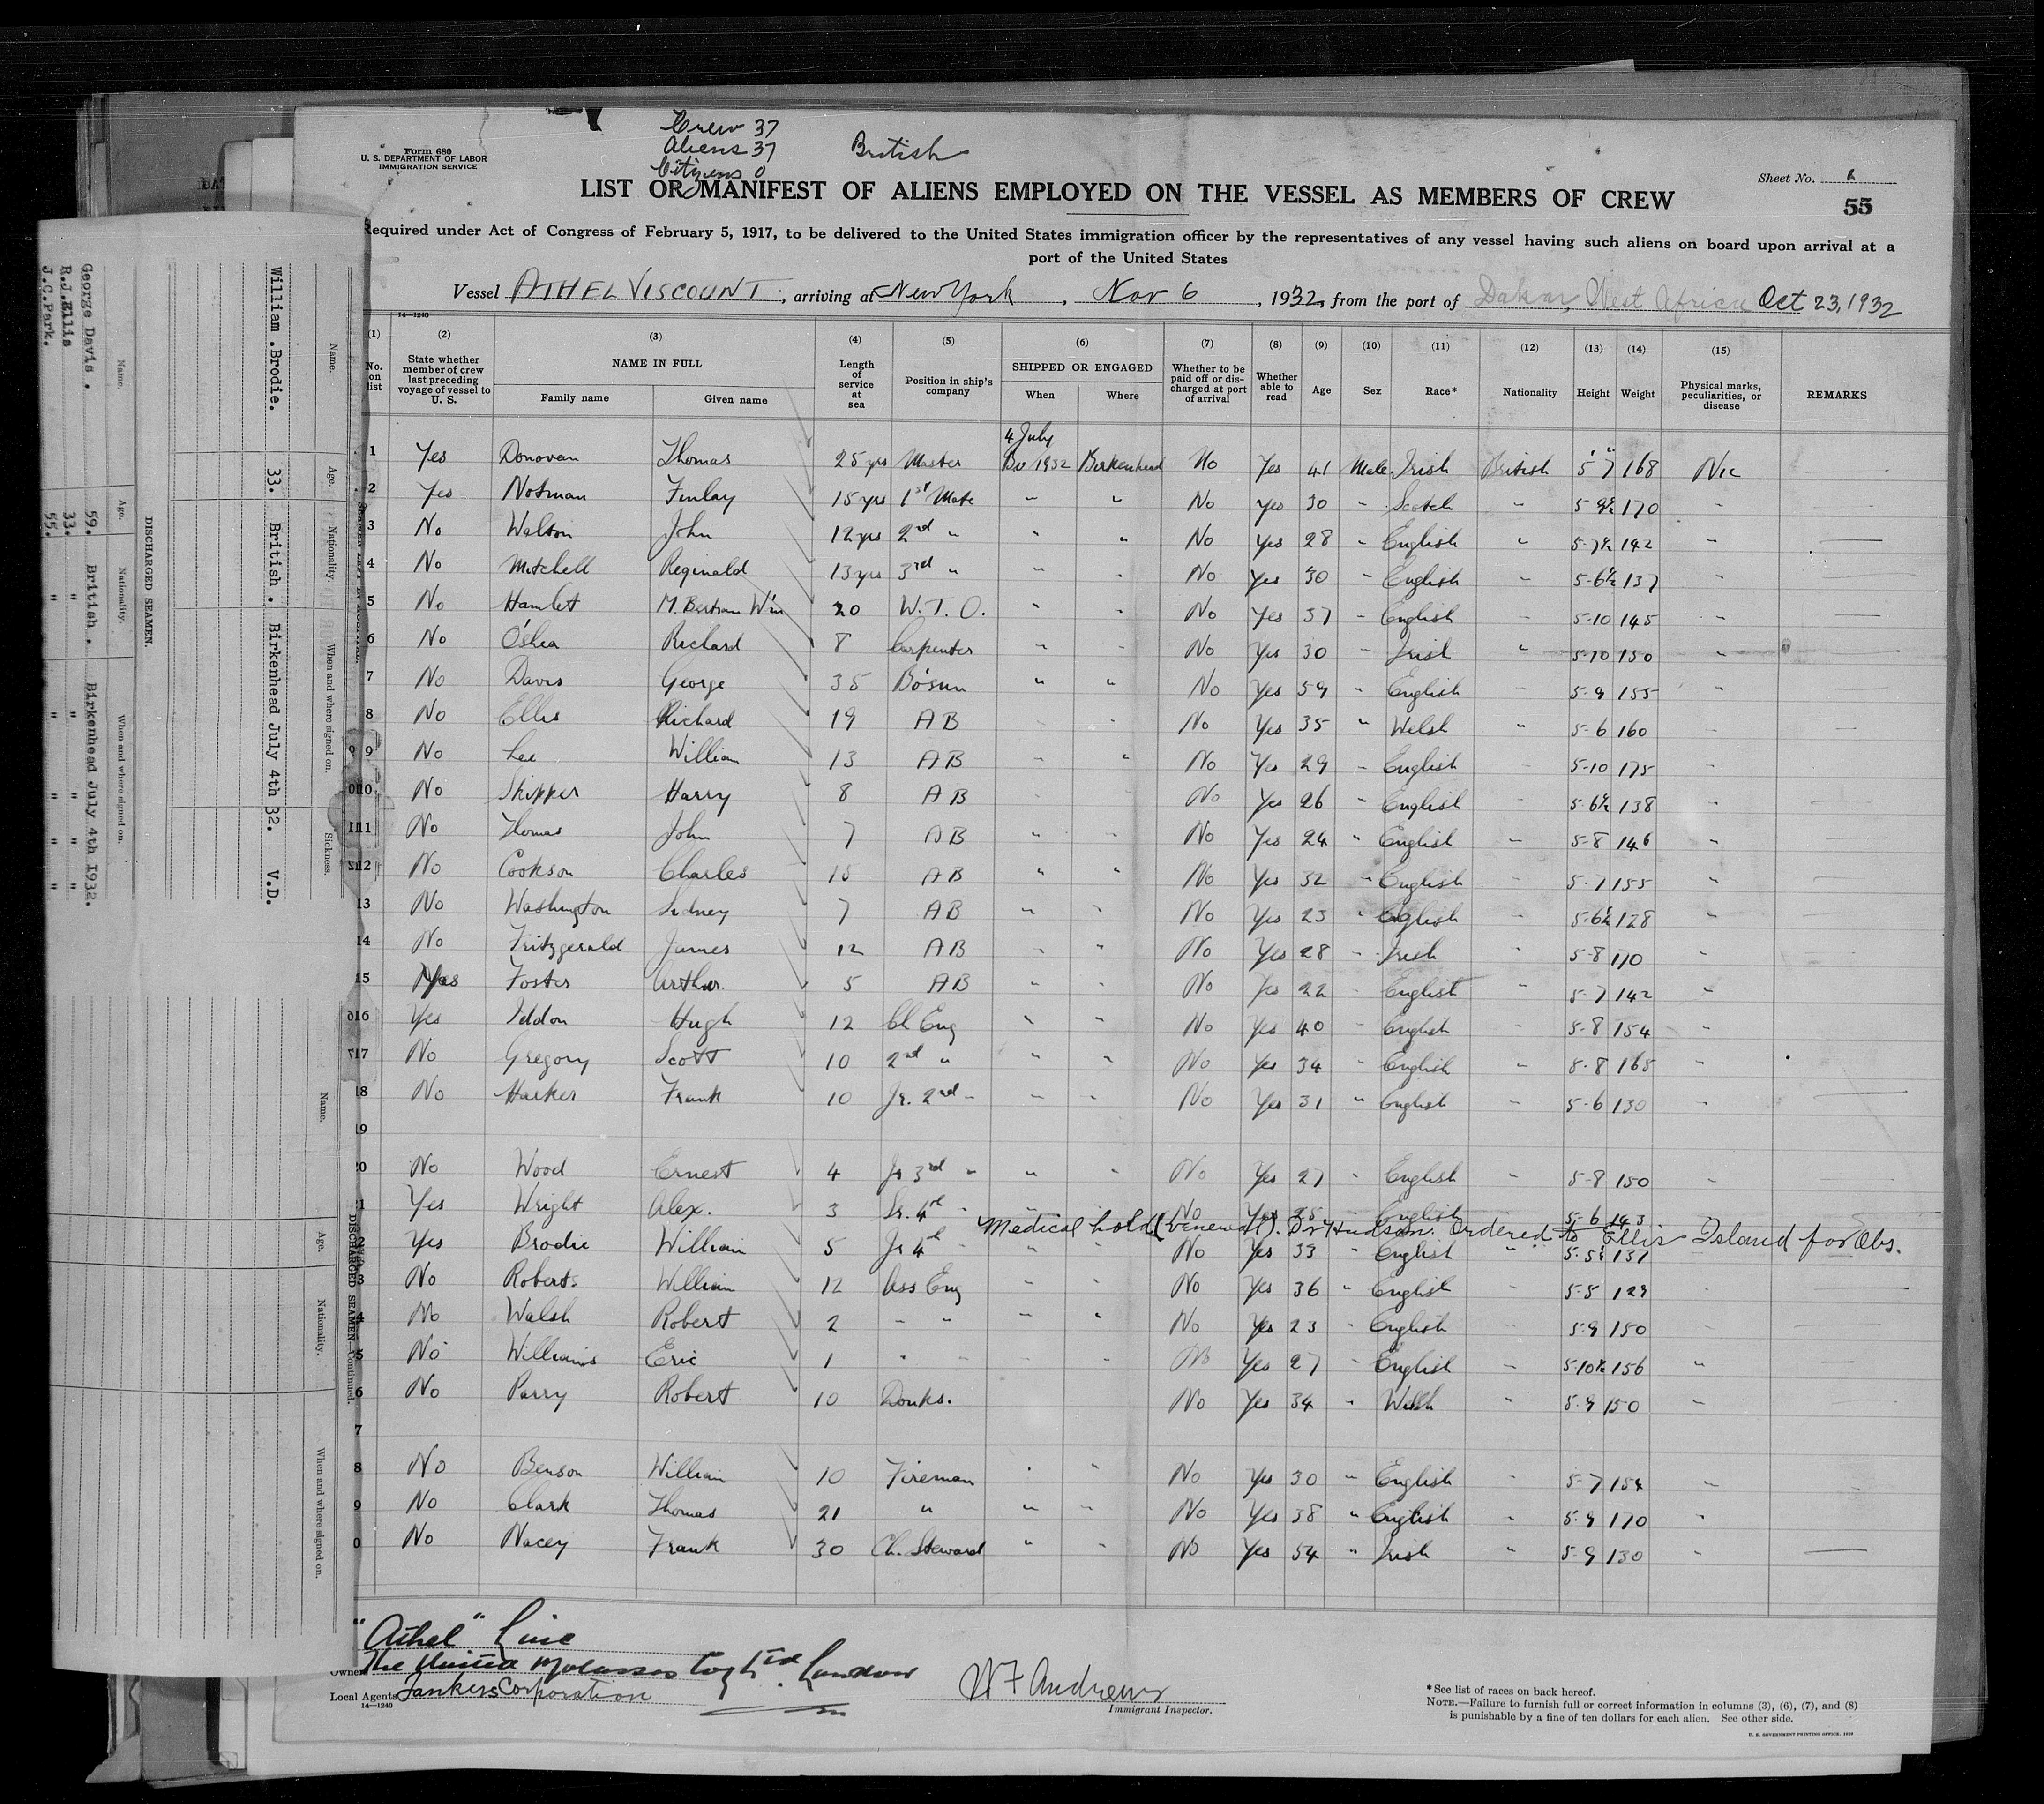 Crew 37
Aliens 37
Citizens 0
British
Form 680
U. S. DEPARTMENT OF LABOR
IMMIGRATION SERVICE
Sheet No.
55
LIST OR MANIFEST OF ALIENS EMPLOYED ON THE VESSEL AS MEMBERS OF CREW
Required under Act of Congress of February 5, 1917, to be delivered to the United States immigration officer by the representatives of any vessel having such aliens on board upon arrival at a
port of the United States
Vessel ATHELVISCOUNT, arriving at New York, Nov 6, 1932, from the port of Dakar, West Africa Oct 23, 1932
14—1240
(1) (2) (3) (4) (5) (6) (7) (8) (9) (10) (11) (12) (13) (14) (15)
No. on list
State whether member of crew last preceding voyage of vessel to U. S.
NAME IN FULL
Family name Given name
Length of service at sea
Position in ship's company
SHIPPED OR ENGAGED
When Where
Whether to be paid off or discharged at port of arrival
Whether able to read
Age Sex Race* Nationality Height Weight
Physical marks, peculiarities, or disease
REMARKS
4 July
1 Yes Donovan Thomas 25 yrs Master 1932 Birkenhead No Yes 41 Male Irish British 5' 7" 168
2 Yes Notman Finlay 15 yrs 1st Mate " " No Yes 30 " Scotch " 5-9½ 170 "
3 No Walton John 12 yrs 2nd " " " No Yes 28 " English " 5-7½ 142 "
4 No Mitchell Reginald 13 yrs 3rd " " " No Yes 30 " English " 5-6½ 137 "
5 No Hamlet M. Bertram Wm 20 W. T. O. " " No Yes 37 " English " 5-10 145 "
6 No O'Shea Richard 8 Carpenter " " No Yes 30 " Irish " 5-10 150 "
7 No Davis George 35 Bo'sun " " No Yes 59 " English " 5-9 155 "
8 No Ellis Richard 19 AB " " No Yes 35 " Welsh " 5-6 160 "
9 No Lee William 13 AB " " No Yes 29 " English " 5-10 175 "
10 No Skipper Harry 8 AB " " No Yes 26 " English " 5-6½ 138 "
11 No Thomas John 7 AB " " No Yes 24 " English " 5-8 146 "
12 No Cookson Charles 15 AB " " No Yes 32 " English " 5-7 155 "
13 No Washington Sidney 7 AB " " No Yes 23 " English " 5-6½ 128 "
14 No Fritzgerald James 12 AB " " No Yes 28 " Irish " 5-8 170 "
15 Yes Foster Arthur 5 AB " " No Yes 22 " English " 5-7 142 "
16 Yes Iddon Hugh 12 Ch Eng " " No Yes 40 " English " 5-8 154 "
17 No Gregory Scott 10 2nd " " " No Yes 34 " English " 5-8 165 "
18 No Harker Frank 10 Jr. 2nd " " " No Yes 31 " English " 5-6 130 "
19
20 No Wood Ernest 4 Jr 3rd " " " No Yes 27 " English " 5-8 150 "
21 Yes Wright Alex. 3 Sr. 4th " " " No Yes 25 " English 5-6 143
Medical hold (venereal). Dr Hudson. Ordered to Ellis Island for Obs.
2 Yes Brodie William 5 Jr 4th " " " No Yes 33 " English " 5-5½ 137
3 No Roberts William 12 Ass Eng " " No Yes 36 " English " 5-5 129
4 No Walsh Robert 2 " " " " No Yes 23 " English " 5-9 150
5 No Williams Eric 1 " " " " No Yes 27 " English " 5-10½ 156 "
6 No Parry Robert 10 Donks. No Yes 34 " Welsh " 5-9 150 "
7
8 No Benson William 10 Fireman " " No Yes 30 " English " 5-7 154 "
9 No Clark Thomas 21 " " " No Yes 38 " English " 5-9 170 "
0 No Nacey Frank 30 Ch. Steward " " No Yes 54 " Irish " 5-9 130 "
"Athel" Line
Owners The United Molasses Coy Ltd London
Local Agents Tankers Corporation
14—1240
W F Andrews
Immigrant Inspector.
*See list of races on back hereof.
NOTE.—Failure to furnish full or correct information in columns (3), (6), (7), and (8)
is punishable by a fine of ten dollars for each alien. See other side.
U. S. GOVERNMENT PRINTING OFFICE
SEAMEN LEFT IN HOSPITAL.
Name. Age. Nationality. When and where signed on. Sickness.
William .Brodie. 33. British . Birkenhead July 4th 32. V.D.
DISCHARGED SEAMEN.
Name. Age. Nationality. When and where signed on.
George Davis . 59. British . Birkenhead July 4th 1932.
R.J.Ellis 33. " " " " "
J.C.Park. 55. " " " " "
DISCHARGED SEAMEN—Continued.
Name. Age. Nationality. When and where signed on.